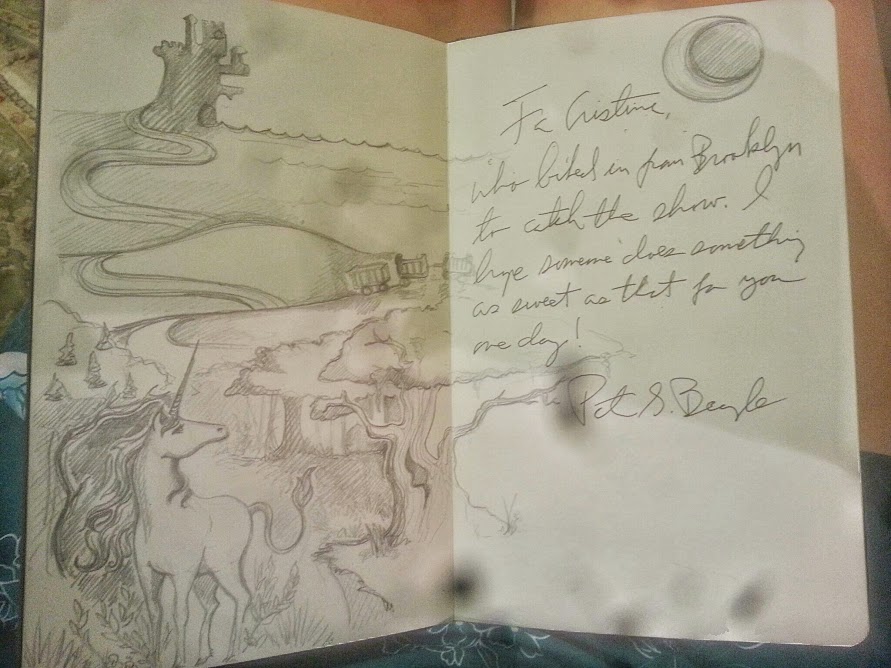 For Cristine,
who biked in from Brooklyn
to catch the show. I
hope someone does something
as sweet as that for you
one day!
Peter S. Beagle